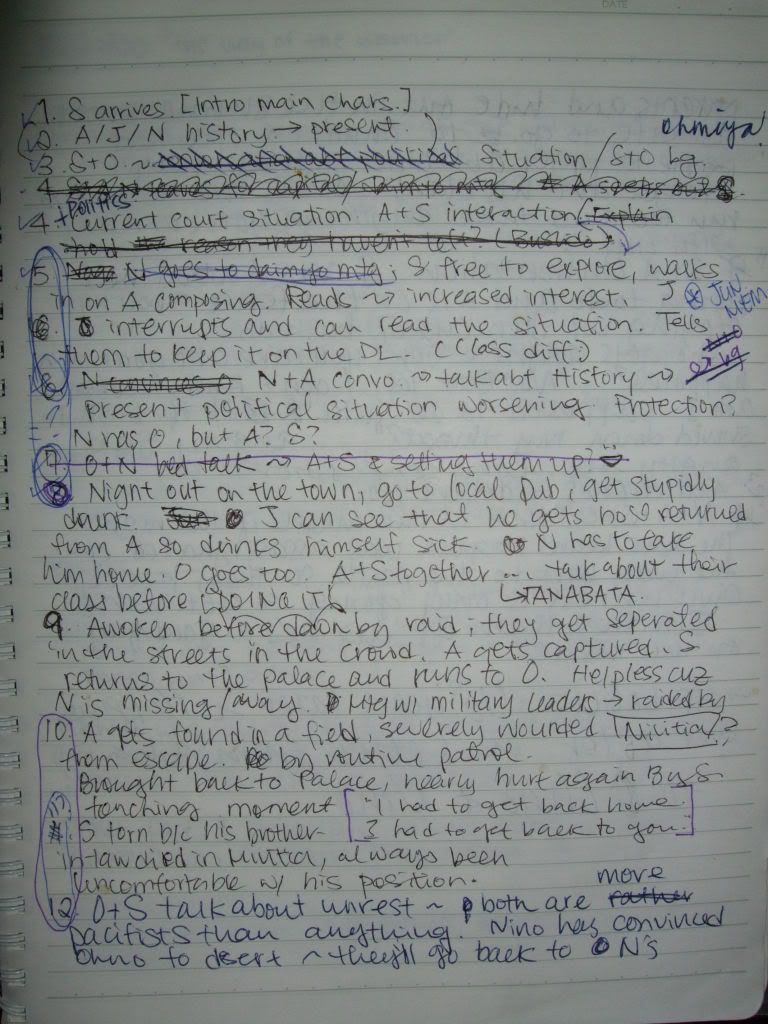 DATE
1. S arrives. [Intro main chars.]
2. A/J/N history → present.
ohmiya
3. S+O ~ Situation / S+O bg.
4.
+ politics
4. Current court situation A+S interaction (Explain
reason they haven't left? (Bushido)
5. N goes to daimyo mtg; S free to explore, walks
in on A composing. Reads ~> increased interest. J
JUN
MEM
6. J interrupts and can read the situation. Tells
them to keep it on the DL. (Class diff.)
N convinces O N+A convo. ~> talk abt History ~>
present political situation worsening. Protection?
N has O, but A? S?
7. O+N bed talk ~> A+S & setting them up?
8. Night out on the town, go to local pub, get stupidly
drunk. J can see that he gets no ♡ returned
from A so drinks himself sick. N has to take
him home. O goes too. A+S together ... talk about their
class before [DOING IT]
↳TANABATA.
9. Awoken before dawn by raid; they get seperated
in the streets in the crowd. A gets captured. S
returns to the palace and runs to O. Helpless cuz
N is missing/away. Mtg w/ military leaders → raided by
Militia?
10. A gets found in a field, severely wounded
from escape. by routine patrol.
Brought back to Palace, nearly hurt again By S.
touching moment "I had to get back home.
I had to get back to you."
S torn b/c his brother-
in-law died in Militia, always been
uncomfortable w/ his position.
12. O+S talk about unrest ~ both are rather more
pacifists than anything. Nino has convinced
Ohno to desert ~ they'll go back to N's